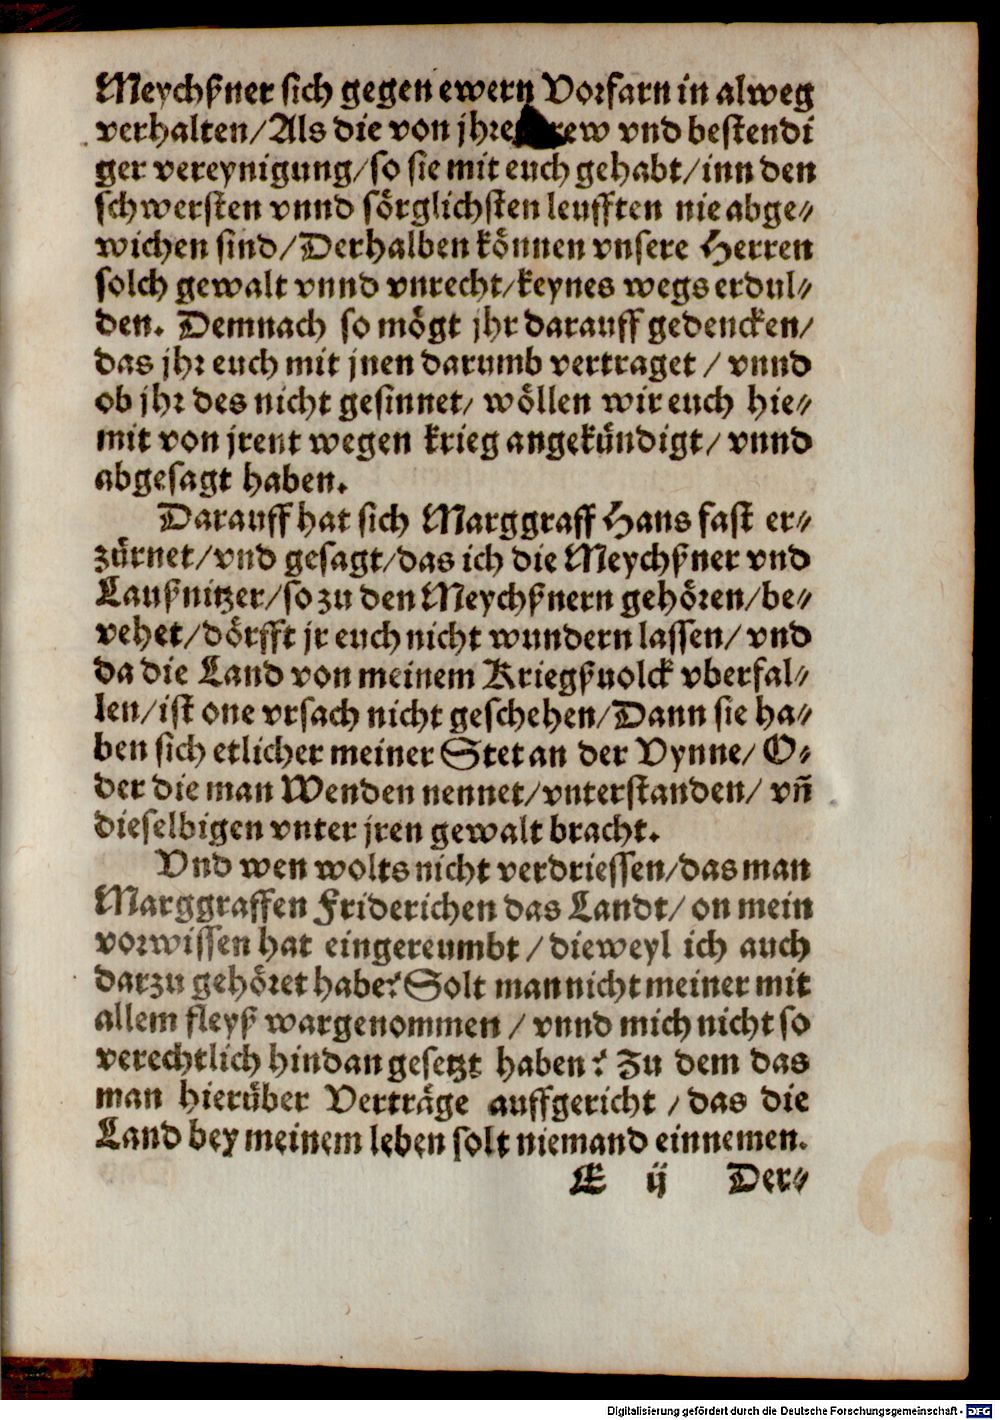 Meychßner sich gegen ewern Vorfarn in alweg
verhalten/Als die von jhrer trew vnd bestendi
ger vereynigung/so sie mit euch gehabt/inn den
schwersten vnnd sörglichsten leufften nie abge⸗
wichen sind/Derhalben können vnsere Herren
solch gewalt vnnd vnrecht/keynes wegs erdul⸗
den. Demnach so mögt jhr darauff gedencken/
das jhr euch mit jnen darumb vertraget / vnnd
ob jhr des nicht gesinnet/ wöllen wir euch hie⸗
mit von jrent wegen krieg angekündigt/ vnnd
abgesagt haben.
Darauff hat sich Marggraff Hans fast er⸗
zürnet/vnd gesagt/das ich die Meychßner vnd
Laußnitzer/so zu den Meychßnern gehören/be⸗
vehet/dörfft jr euch nicht wundern lassen/ vnd
da die Land von meinem Kriegßuolck vberfal⸗
len/ist one vrsach nicht geschehen/Dann sie ha⸗
ben sich etlicher meiner Stet an der Vynne/ O⸗
der die man Wenden nennet/vnterstanden/ vñ
dieselbigen vnter jren gewalt bracht.
Vnd wen wolts nicht verdriessen/das man
Marggraffen Friderichen das Landt/ on mein
vorwissen hat eingereumbt / dieweyl ich auch
darzu gehöret habe? Solt man nicht meiner mit
allem fleyß wargenommen / vnnd mich nicht so
verechtlich hindan gesetzt haben? Zu dem das
man hierüber Verträge auffgericht / das die
Land bey meinem leben solt niemand einnemen.
E ij Der⸗
Digitalisierung gefördert durch die Deutsche Forschungsgemeinschaft - DFG